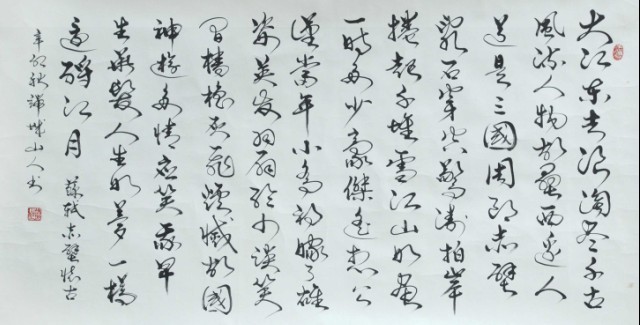 大江东去浪淘尽千古
风流人物故垒西边人
道是三國周郎赤壁
乱石穿空惊涛拍岸
捲起千堆雪江山如画
一時多少豪傑遥想公
瑾當年小喬初嫁了雄
姿英发羽扇纶巾谈笑
间樯橹灰飛煙滅故國
神遊多情应笑我早
生華髮人生如夢一樽
還酹江月 蘇轼赤壁懷古
辛卯秋城山人书